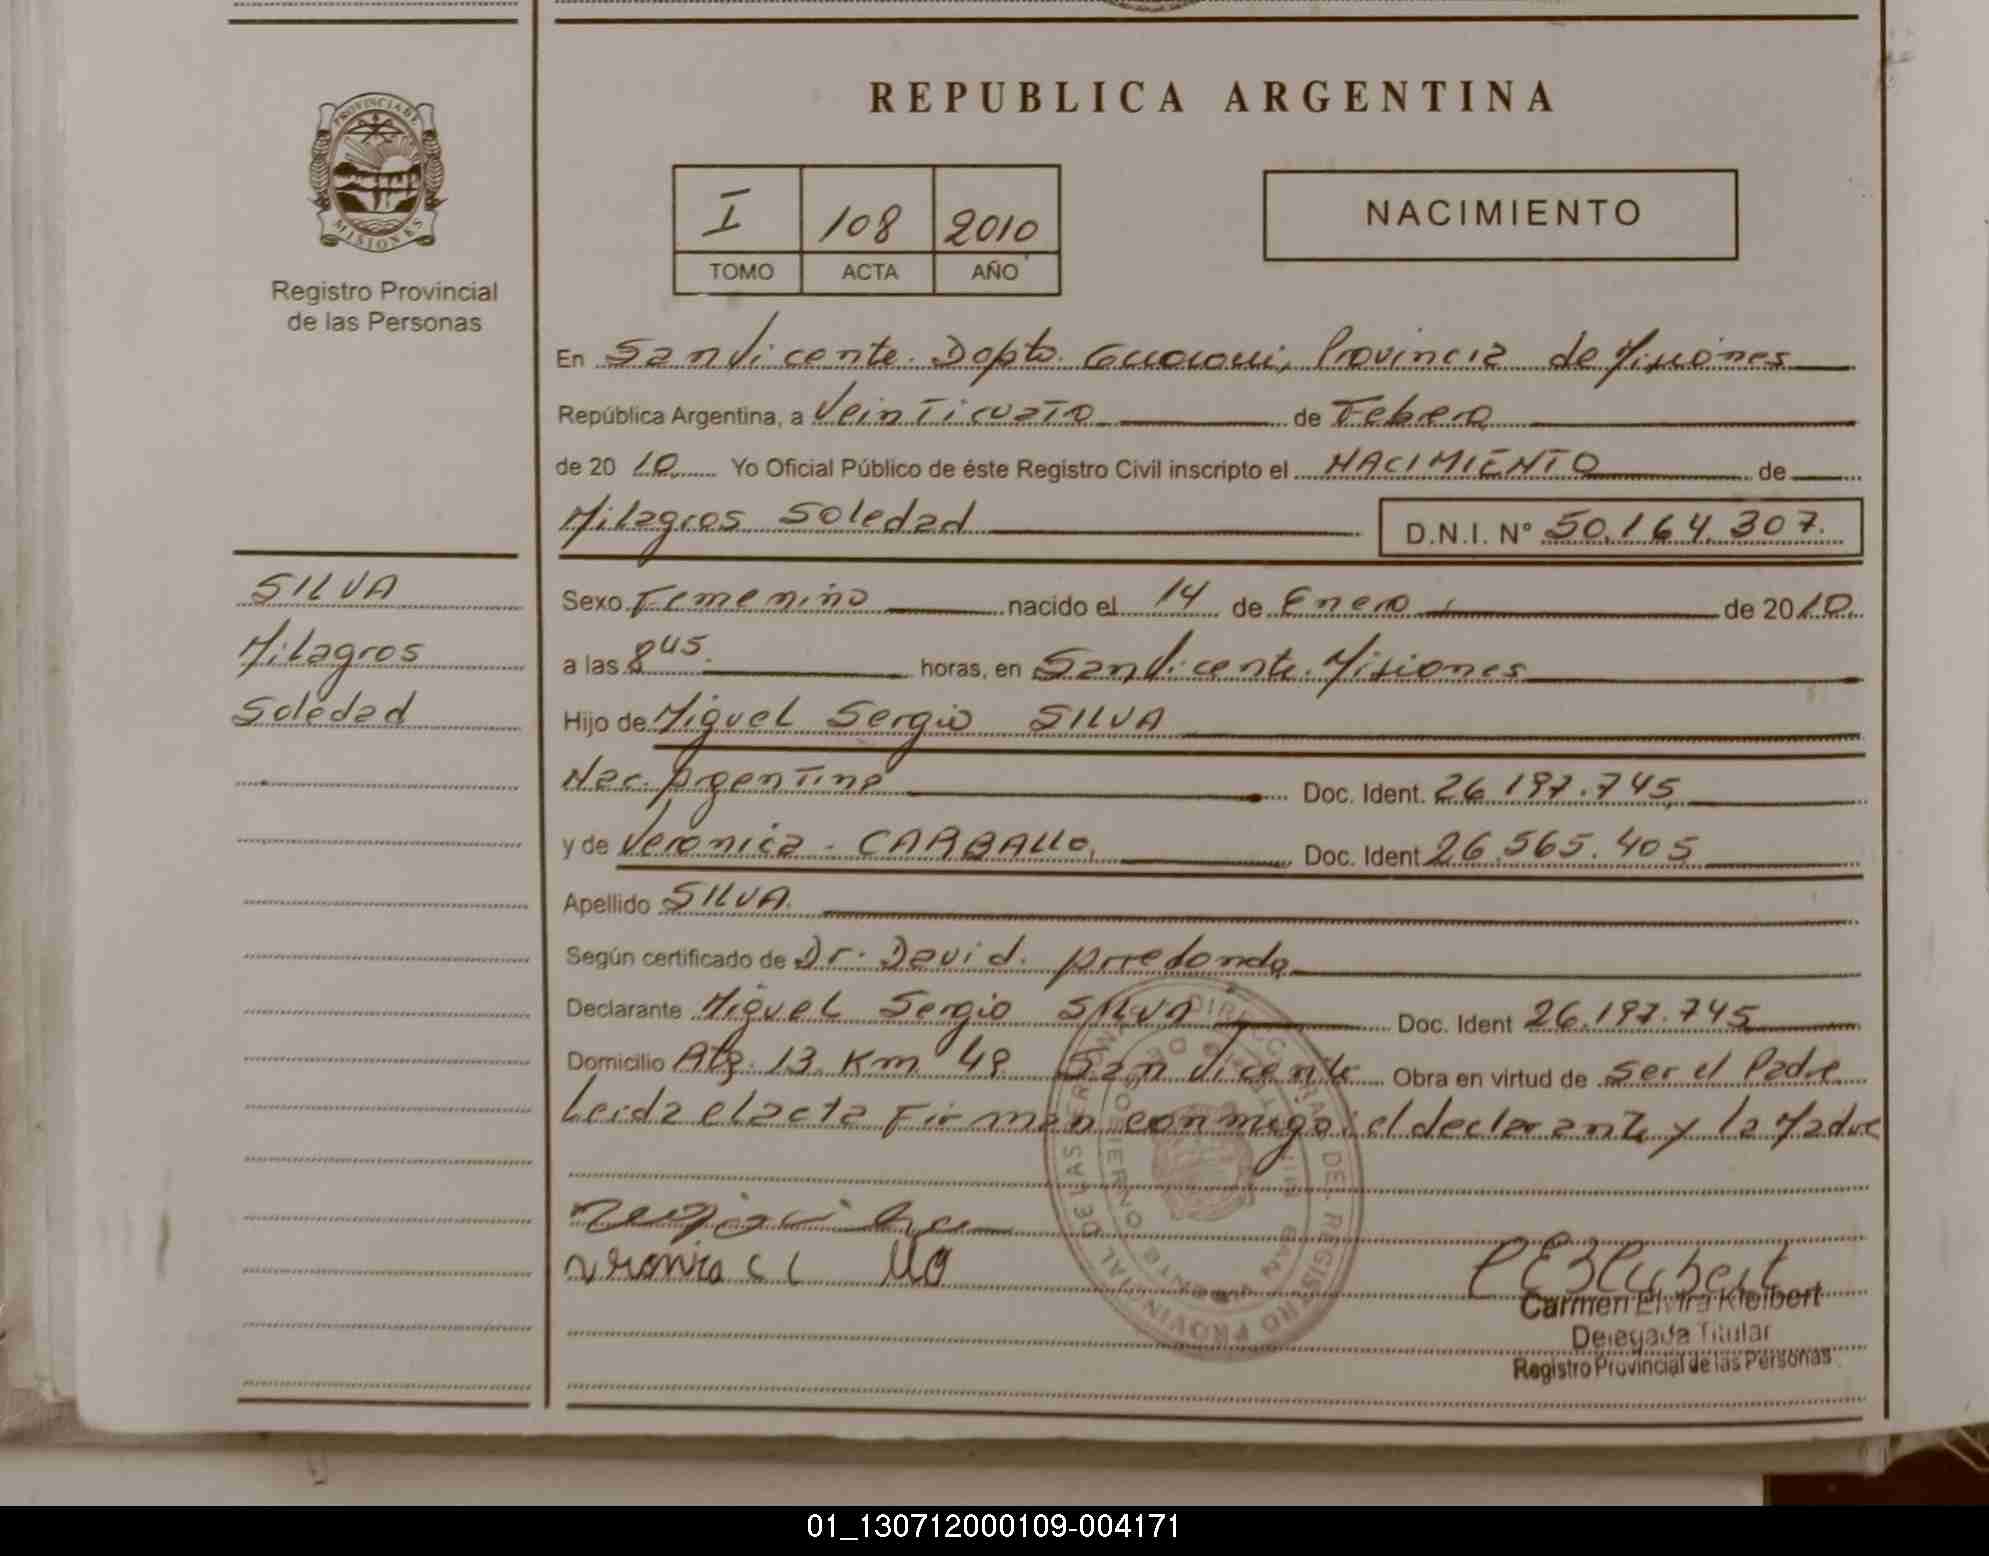 REPUBLICA ARGENTINA
PROVINCIA DE
MISIONES
Registro Provincial
de las Personas
I 108 2010
TOMO ACTA AÑO
NACIMIENTO
En San Vicente. Dpto. Guaraní, Provincia de Misiones
República Argentina, a Veinticuatro de Febrero
de 20 10 Yo Oficial Público de éste Registro Civil inscripto el NACIMIENTO de
Milagros Soledad D.N.I. N° 50.164.307.
SILVA
Milagros
Soledad
Sexo Femenino nacido el 14 de Enero de 20 10.
a las 8 45. horas, en San Vicente. Misiones
Hijo de Miguel Sergio SILVA
Nac. Argentina Doc. Ident. 26.197.745
y de Veronica - CARBALLO, Doc. Ident 26.565.405
Apellido SILVA.
Según certificado de Dr. David. Arredondo
Declarante Miguel Sergio SILVA Doc. Ident 26.197.745
Domicilio 13 Km 48 San Vicente Obra en virtud de ser el Padre
Leida el acta Firman conmigo: el declarante y la Madre
Carmen Elvira Kleibert
Delegada Titular
Registro Provincial de las Personas
01_130712000109-004171